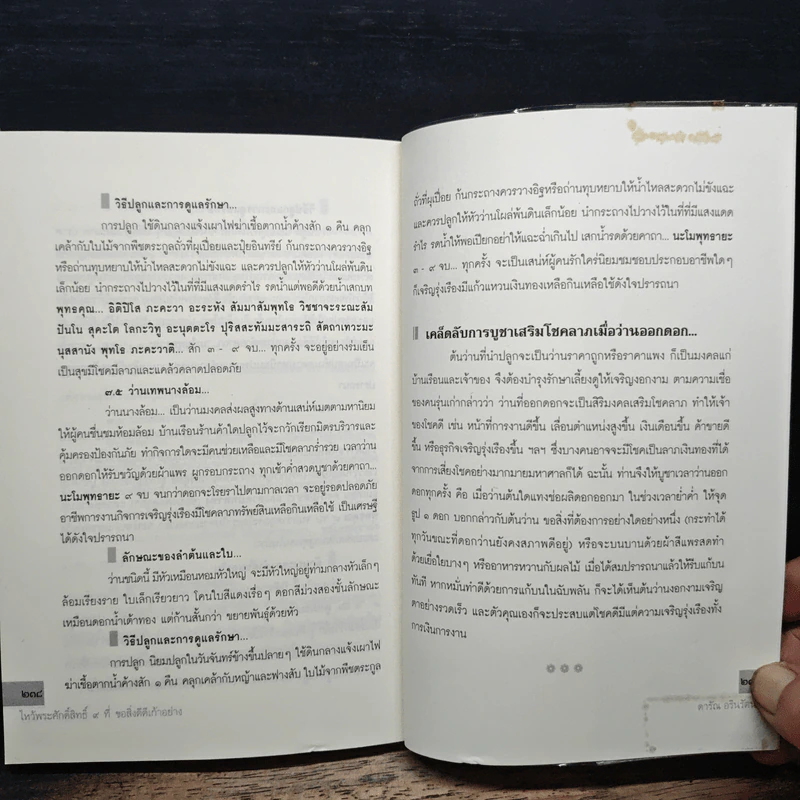 วิธีปลูกและการดูแลรักษา...
การปลูก ใช้ดินกลางแจ้งเผาไฟฆ่าเชื้อตากน้ำค้างสัก ๑ คืน คลุก
เคล้ากับใบไม้จากพืชตระกูลถั่วที่ผุเปื่อยและปุ๋ยอินทรีย์ ก้นกระถางควรวางอิฐ
หรือถ่านทุบหยาบให้น้ำไหลสะดวกไม่ขังแฉะ และควรปลูกให้หัวว่านโผล่พ้นดิน
เล็กน้อย นำกระถางไปวางไว้ในที่ที่มีแสงแดดรำไร รดน้ำแต่พอดีด้วยน้ำเสกบท
พุทธคุณ... อิติปิโส ภะคะวา อะระหัง สัมมาสัมพุทโธ วิชชาจะระณะสัม
ปันโน สุคะโต โลกะวิทู อะนุตตะโร ปุริสสะทัมมะสาระถิ สัตถาเทวะมะ
นุสสานัง พุทโธ ภะคะวาติ... สัก ๓ - ๙ จบ... ทุกครั้ง จะอยู่อย่างร่มเย็น
เป็นสุขมีโชคมีลาภและแคล้วคลาดปลอดภัย
๓.๕ ว่านเทพนางล้อม...
ว่านนางล้อม... เป็นว่านมงคลส่งผลสูงทางด้านเสน่ห์เมตตามหานิยม
ให้ผู้คนชื่นชมห้อมล้อม บ้านเรือนร้านค้าใดปลูกไว้จะกวักเรียกมิตรบริวารและ
คุ้มครองป้องกันภัย ทำกิจการใดจะมีคนช่วยเหลือและมีโชคลาภร่ำรวย เวลาว่าน
ออกดอกให้รับขวัญด้วยผ้าแพร ผูกรอบกระถาง ทุกเช้าค่ำสวดบูชาด้วยคาถา...
นะโมพุทธายะ ๙ จบ จนกว่าดอกจะโรยราไปตามกาลเวลา จะอยู่รอดปลอดภัย
อาชีพการงานกิจการเจริญรุ่งเรืองมีโชคลาภทรัพย์สินเหลือกินเหลือใช้ เป็นเศรษฐี
ได้ดังใจปรารถนา
ลักษณะของลำต้นและใบ...
ว่านชนิดนี้ มีหัวเหมือนหอมหัวใหญ่ จะมีหัวใหญ่อยู่ท่ามกลางหัวเล็กๆ
ล้อมเรียงราย ใบเล็กเรียวยาว โคนใบสีแดงเรื่อๆ ดอกสีม่วงสองชั้นลักษณะ
เหมือนดอกน้ำเต้าทอง แต่ก้านสั้นกว่า ขยายพันธุ์ด้วยหัว
วิธีปลูกและการดูแลรักษา...
การปลูก นิยมปลูกในวันจันทร์ข้างขึ้นปลายๆ ใช้ดินกลางแจ้งเผาไฟ
ฆ่าเชื้อตากน้ำค้างสัก ๑ คืน คลุกเคล้ากับหญ้าและฟางสับ ใบไม้จากพืชตระกูล
๒๓๘
ไหว้พระศักดิ์สิทธิ์ ๙ ที่ ขอสิ่งดีดีเก้าอย่าง
ถั่วที่ผุเปื่อย ก้นกระถางควรวางอิฐหรือถ่านทุบหยาบให้น้ำไหลสะดวกไม่ขังแฉะ
และควรปลูกให้หัวว่านโผล่พ้นดินเล็กน้อย นำกระถางไปวางไว้ในที่ที่มีแสงแดด
รำไร รดน้ำให้พอเปียกอย่าให้แฉะฉ่ำเกินไป เสกน้ำรดด้วยคาถา... นะโมพุทธายะ
๓ - ๙ จบ... ทุกครั้ง จะเป็นเสน่ห์ผู้คนรักใคร่นิยมชมชอบประกอบอาชีพใดๆ
ก็เจริญรุ่งเรืองมีแก้วแหวนเงินทองเหลือกินเหลือใช้ดังใจปรารถนา
เคล็ดลับการบูชาเสริมโชคลาภเมื่อว่านออกดอก...
ต้นว่านที่นำปลูกจะเป็นว่านราคาถูกหรือราคาแพง ก็เป็นมงคลแก่
บ้านเรือนและเจ้าของ จึงต้องบำรุงรักษาเลี้ยงดูให้เจริญงอกงาม ตามความเชื่อ
ของคนรุ่นเก่ากล่าวว่า ว่านที่ออกดอกจะเป็นสิริมงคลเสริมโชคลาภ ทำให้เจ้า
ของโชคดี เช่น หน้าที่การงานดีขึ้น เลื่อนตำแหน่งสูงขึ้น เงินเดือนขึ้น ค้าขายดี
ขึ้น หรือธุรกิจเจริญรุ่งเรืองขึ้น ฯลฯ ซึ่งบางคนอาจจะมีโชคเป็นลาภเงินทองที่ได้
จากการเสี่ยงโชคอย่างมากมายมหาศาลก็ได้ ฉะนั้น ท่านจึงให้บูชาเวลาว่านออก
ดอกทุกครั้ง คือ เมื่อว่านต้นใดแทงช่อผลิดอกออกมา ในช่วงเวลาย่ำค่ำ ให้จุด
ธูป ๑ ดอก บอกกล่าวกับต้นว่าน ขอสิ่งที่ต้องการอย่างใดอย่างหนึ่ง (กระทำได้
ทุกวันขณะที่ดอกว่านยังคงสภาพดีอยู่) หรือจะบนบานด้วยผ้าสีแพรสดทำ
ด้วยเยื่อใยบางๆ หรืออาหารหวานกับผลไม้ เมื่อได้สมปรารถนาแล้วให้รีบแก้บน
ทันที หากหมั่นทำดีด้วยการแก้บนในฉับพลัน ก็จะได้เห็นต้นว่านงอกงามเจริญ
ตาอย่างรวดเร็ว และตัวคุณเองก็จะประสบแต่โชคดีมีแต่ความเจริญรุ่งเรืองทั้ง
การเงินการงาน
ดารัณ